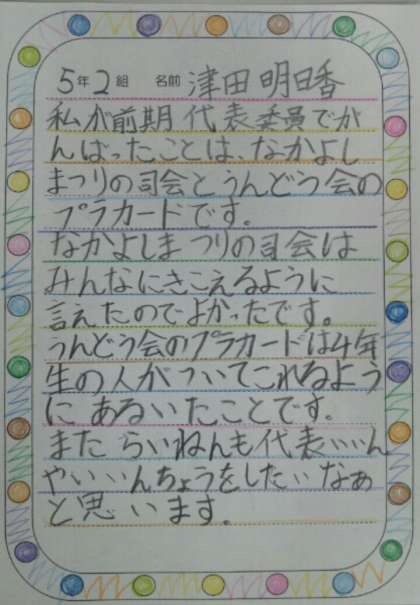 5年2組 名前 津田 明日香
私が前期 代表委員でが
んばったことは、なかよし
まつりの司会とうんどう会の
プラカードです。
なかよしまつりの司会は
みんなにきこえるように
言えたのでよかったです。
うんどう会のプラカードは4年
生の人がついてこれるよう
に あるいたことです。
また らいねんも代表いいん
やいいんちょうをしたいなぁ
と思います。